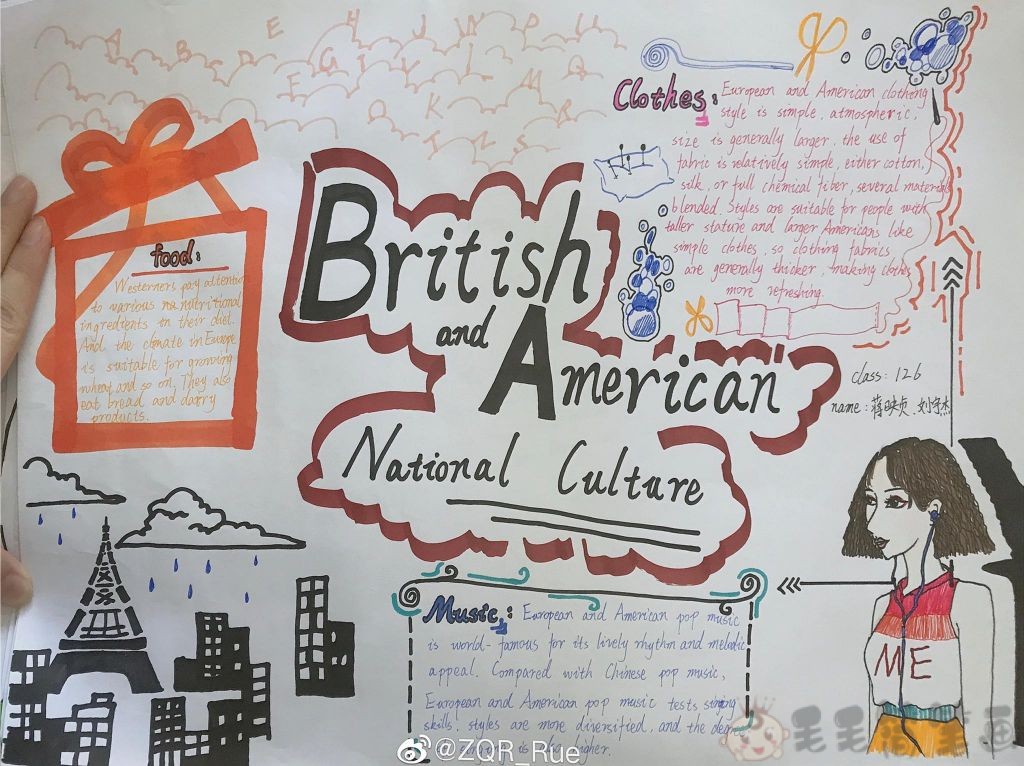 A B D E H J W D U
E G I V L M Q
O K R
T N S
food:
Westerners pay attention
to various nutritional
ingredients in their diet.
And the climate in Europe
is suitable for growing
wheat and so on. They also
eat bread and dairy
products.
British
and American
National Culture
Clothes: European and American clothing
style is simple, atmospheric,
size is generally larger, the use of
fabric is relatively simple, either cotton,
silk, or full chemical fiber, several material
blended. Styles are suitable for people with
taller stature and larger Americans like
simple clothes, so clothing fabrics
are generally thicker, making clothes
more refreshing.
class: 126
name: 蒋映贞、刘宇杰
Music: European and American pop music
is world-famous for its lively rhythm and melodic
appeal. Compared with Chinese pop music,
European and American pop music tests singing
skills, styles are more diversified, and the
is higher.
ME
@ZQR_Rue
毛毛简笔画